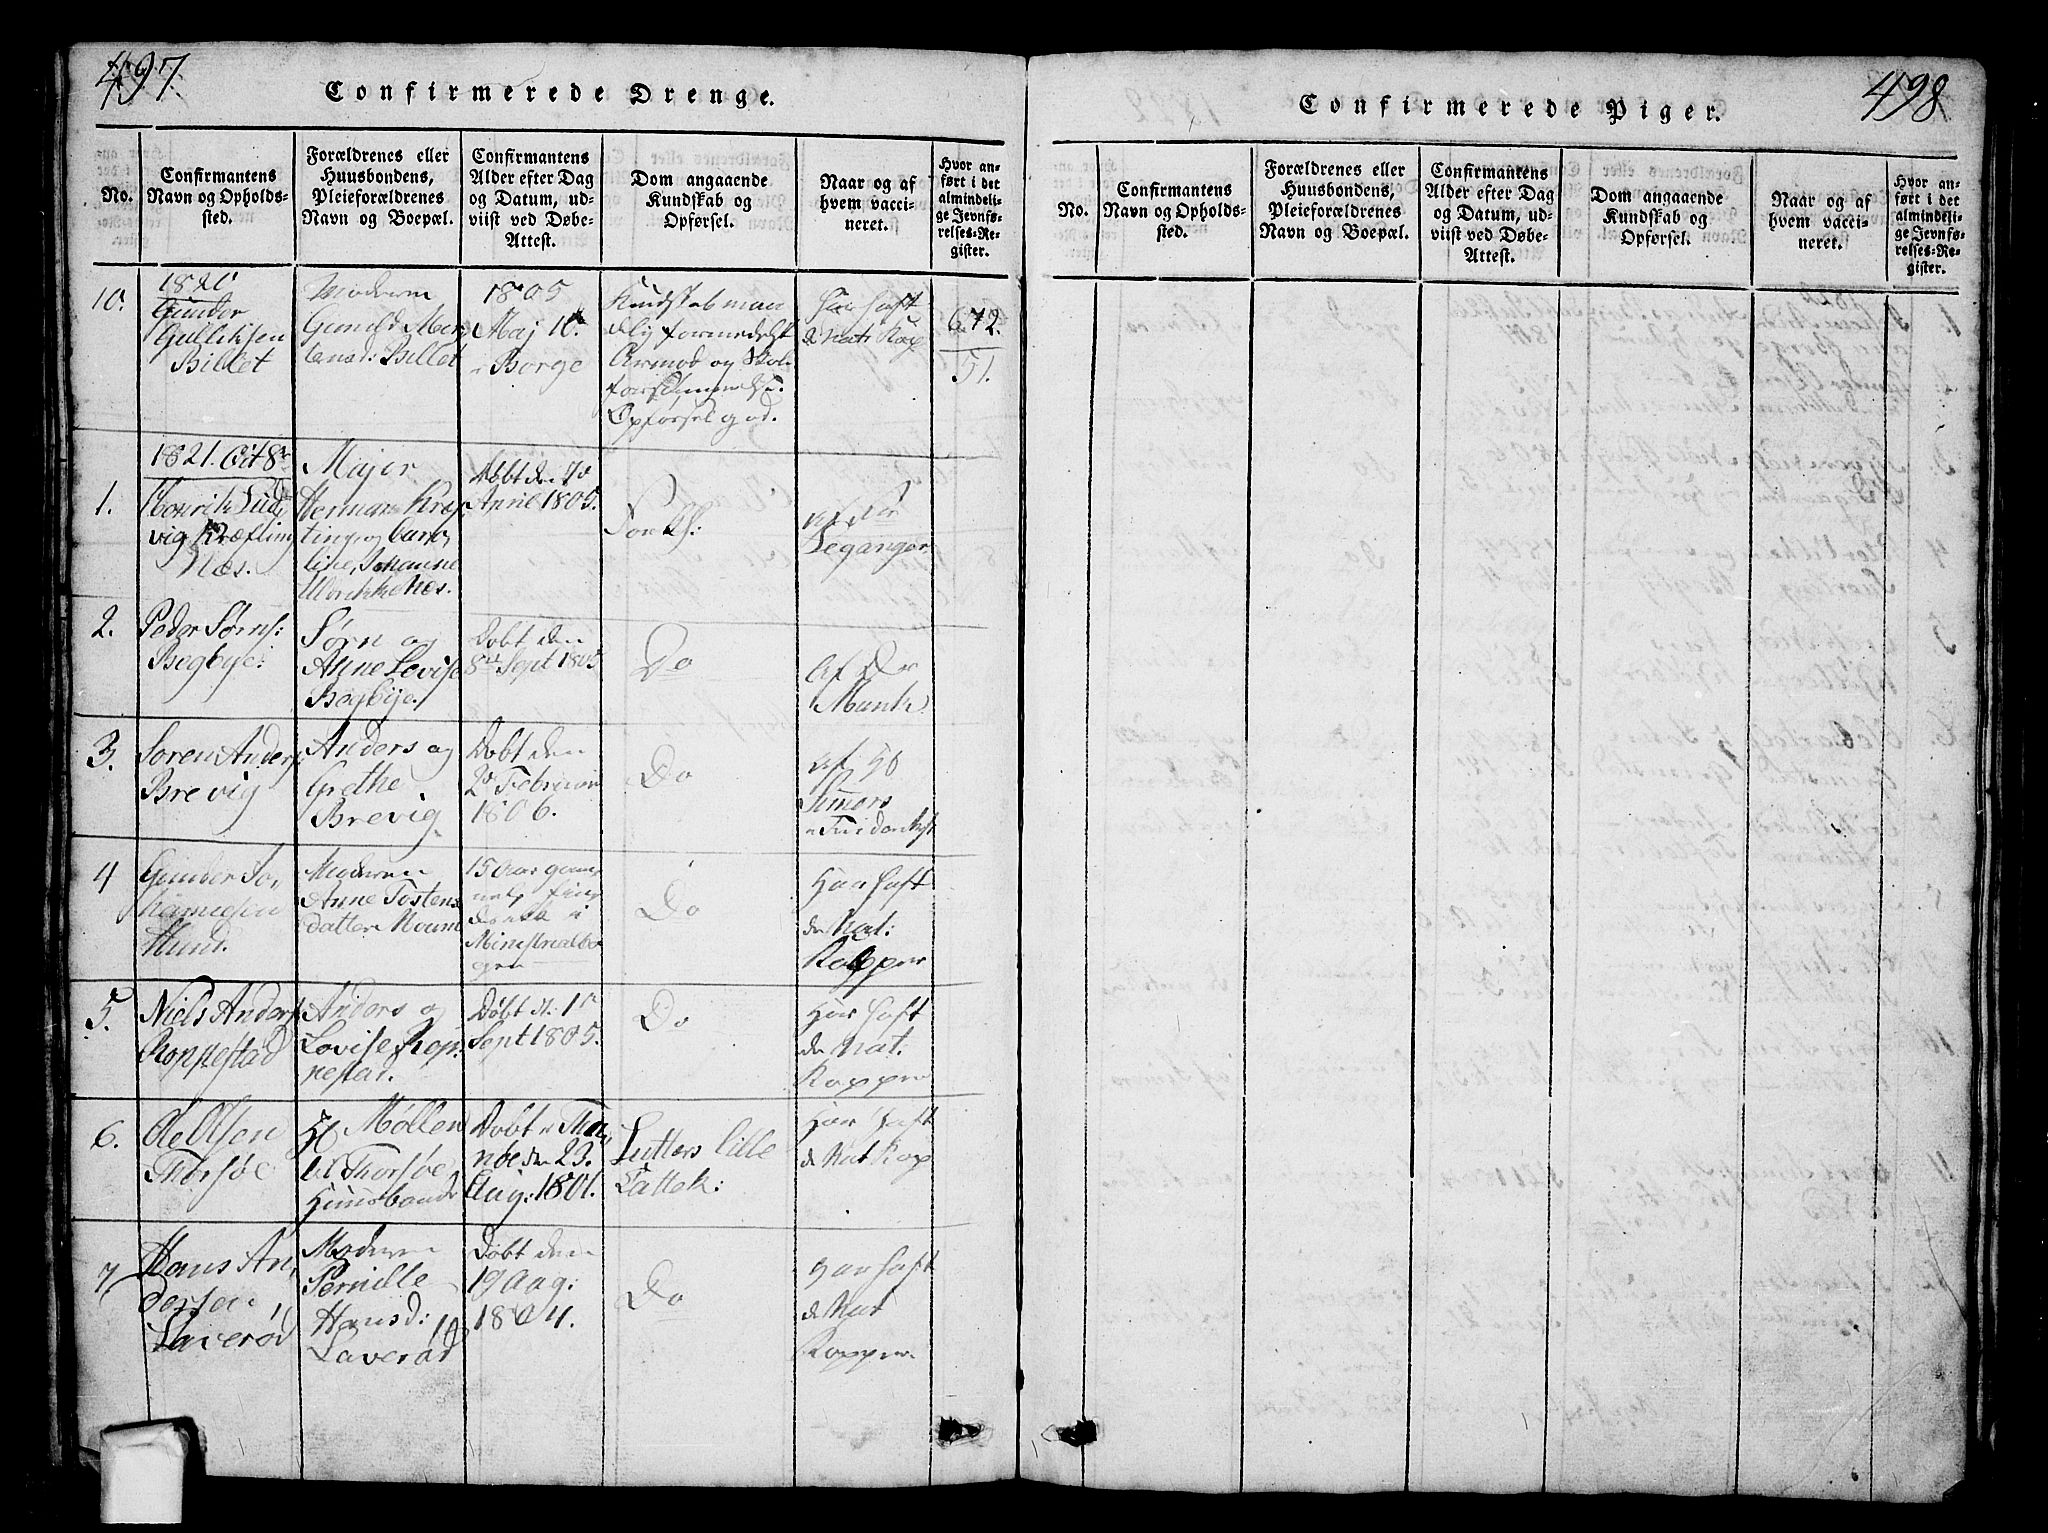 497
Confirmerede Drenge.
No.
Confirmantens
Navn og Opholds-
sted.
Forældrenes eller
Huusbondens,
Pleieforældrenes
Navn og Boepæl.
Confirmantens
Alder efter Dag
og Datum, ud-
viist ved Døbe-
Attest.
Dom angaaende
Kundskab og
Opførsel.
Naar og af
hvem vacci-
neret.
Hvor an-
ført i det
almindeli-
ge Jevnfø-
relses-Re-
gister.
10.
1820
Gunder
Gulliksen
Billet
Moderen
Gunild Mor
tensd: Billet
1805
Maj 10
Borge
Kundskab maa
delig formedelst
Armod og Skol
forsømmelse.
Opførsel god.
Har haft
d. nat: Kop
672.
51.
1821. Oct 8
1.
Henrik Lud
vig Kræfting
Næs.
Majer
Herman Kræf
ting og Caro
line, Johanne
Ulrikke Næs.
Døbt den 7
April 1805.
af Dr
Leganger
2.
Peder Sørns:
Begbye.
Sørn og
Anne Lovise
Begbye.
Døbt den
8 Sept 1805
Do
Af Dr
Munk
3.
Soren Anders
Brevig
Anders og
Grethe
Brevig
Døbt den
2 Februar
1806.
Do
af
Simers
4
Gunder Jo
hannesen
Hund.
Moderen
Anne Tostens
datter Moum
15 Aar gam
Ministerialbo
gen
Do
Har haft
de Nat:
Kopper
5.
Niels Anders
Roppestad
Anders og
Lovise Rop
pestad.
Døbt d. 1
Sept 1805.
Do
Har haft
de Nat:
Kopper
6.
Ole Olsen
Thorsøe
Møllen
til Thorsøe
Huusbond
Døbt
den 23.
Aug: 1801.
Lutters lille
Cattek:
Har haft
d Nat Kop
7
Hans An
dersen
Laverød
Moderen
Pernille
Hansd:
Laverød
Døbt den
19 Aug:
1804.
Do
Har haft
de Nat
Kopper
498
Confirmerede Piger.
No.
Confirmantens
Navn og Opholds-
sted.
Forældrenes eller
Huusbondens,
Pleieforældrenes
Navn og Boepæl.
Confirmantens
Alder efter Dag
og Datum, ud-
viist ved Døbe-
Attest.
Dom angaaende
Kundskab og
Opførsel.
Naar og af
hvem vacci-
neret.
Hvor an-
ført i det
almindeli-
ge Jevnfø-
relses-Re-
gister.